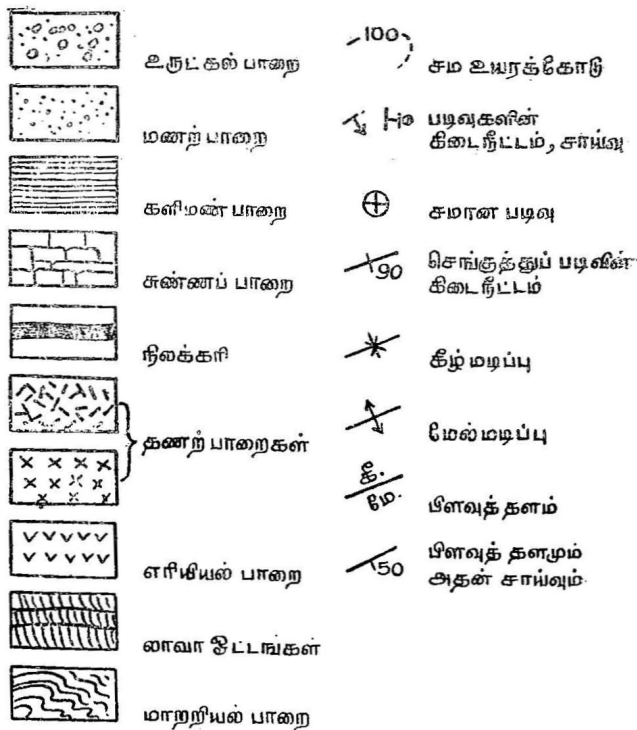 உருட்கல் பாறை
மணற் பாறை
களிமண் பாறை
சுண்ணப் பாறை
நிலக்கரி
தணற் பாறைகள்
எரியியல் பாறை
லாவா ஓட்டங்கள்
மாறறியல் பாறை
100
சம உயரக்கோடு
10
படிவுகளின்
கிடைநீட்டம், சாய்வு
சமான படிவு
90
செங்குத்துப் படிவின்
கிடைநீட்டம்
கீழ் மடிப்பு
மேல்மடிப்பு
கீ.
மே.
பிளவுத் தளம்
50
பிளவுத் தளமும்
அதன் சாய்வும்